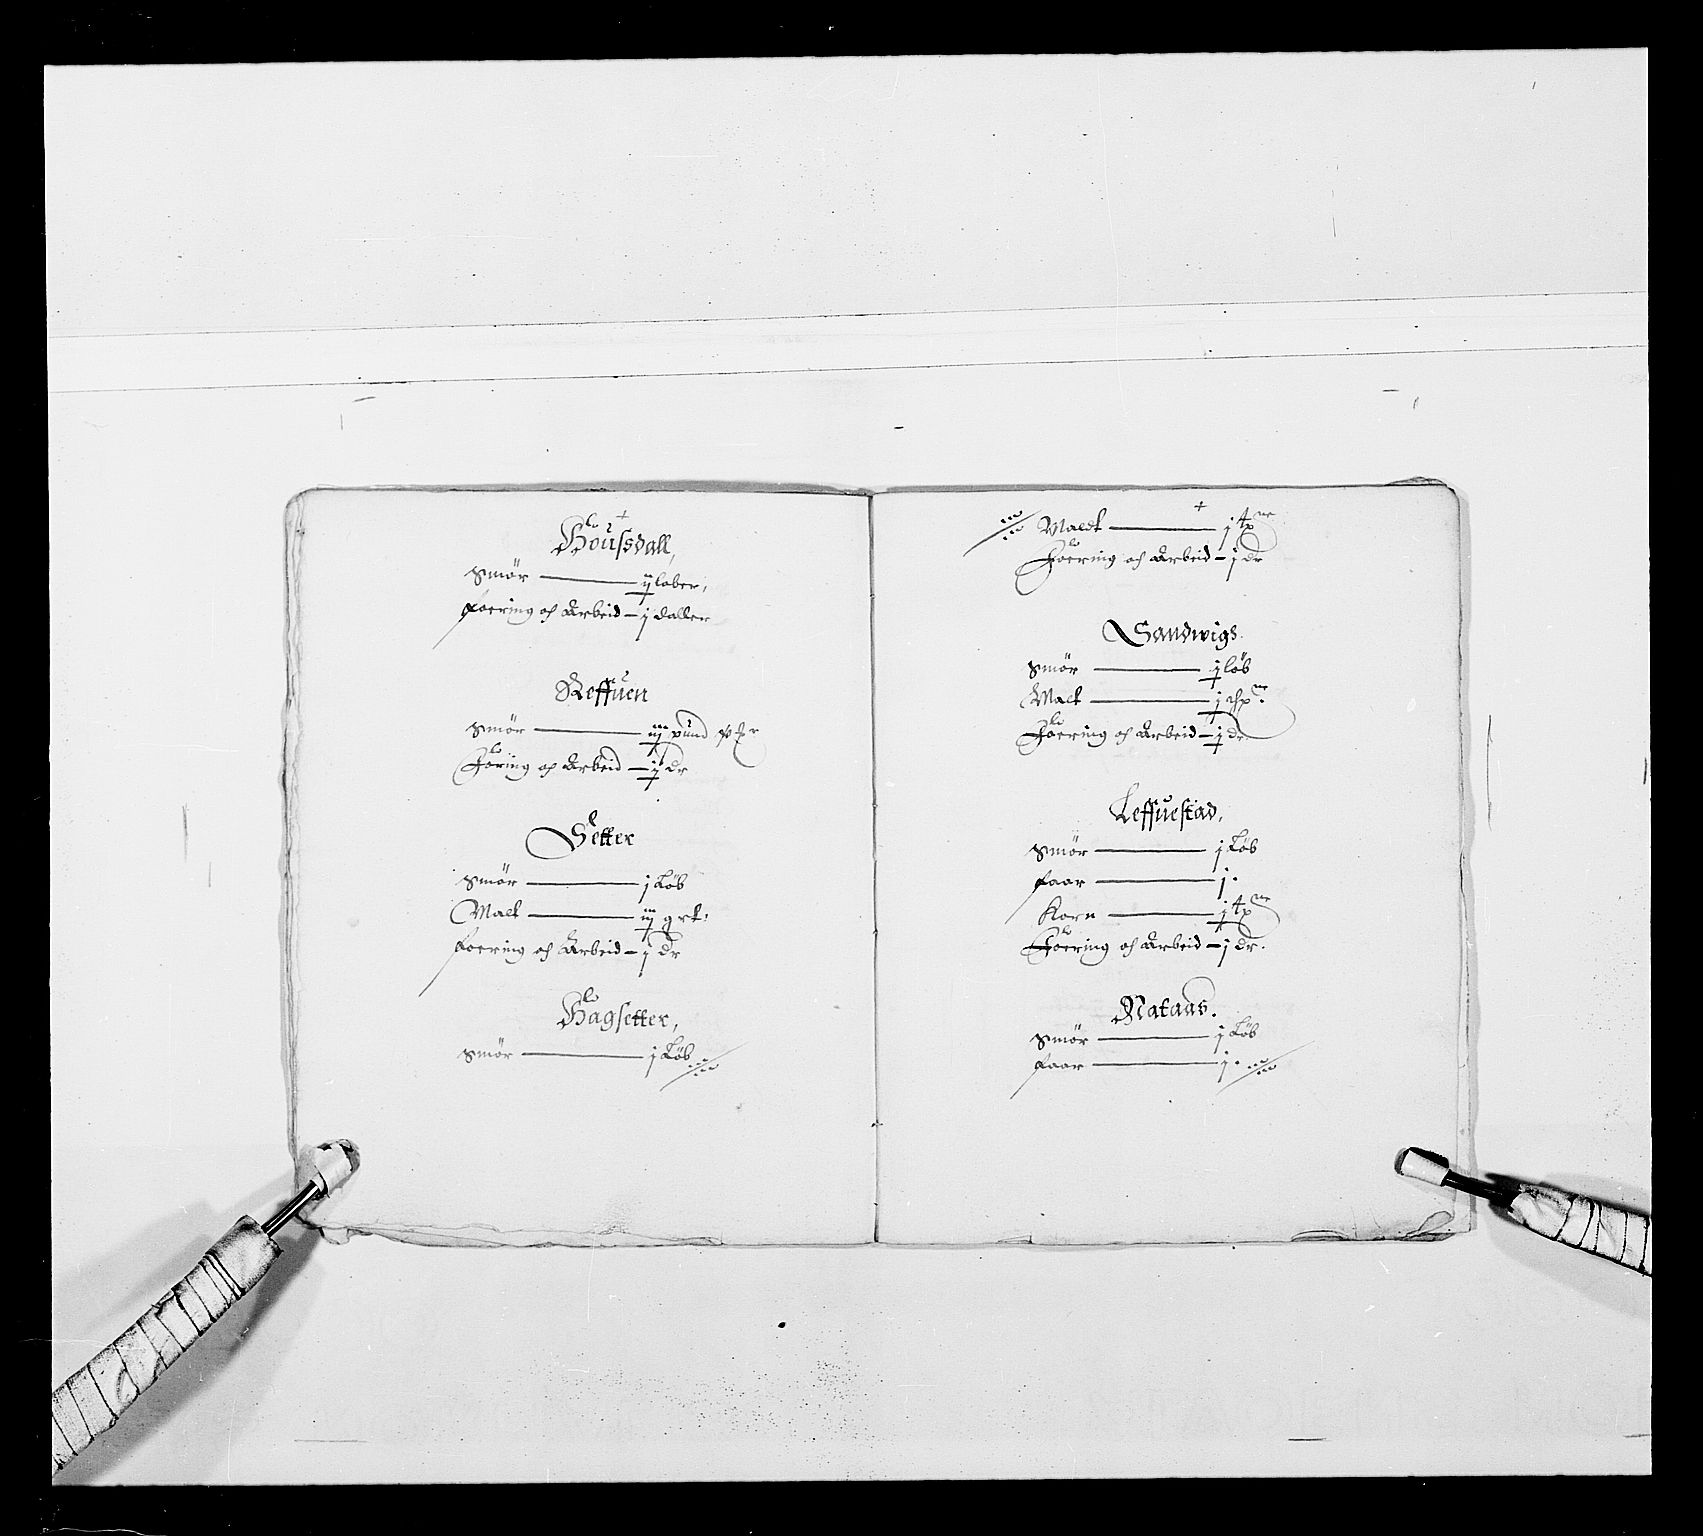 Houssdall,
Smör — ij löber,
Foering och Arbeid — j daller
Reffuen
Smör — iij pund
Föring och Arbeid — ij dr
Setter
Smör — j Löb
Malt — iij
Foering och Arbeid — j dr
Hagsetter,
Smör — j Löb
Maldt — j
Foering och Arbeid — j dr
Sandwigs
Smör — ij löb
Malt — j
Foering och Arbeid — ij dr.
Leffuestad,
Smör — j Löb
Faar — j.
Korn — j
Foering och Arbeid — j dr.
Nataas.
Smör — j Löb
Faar — j.